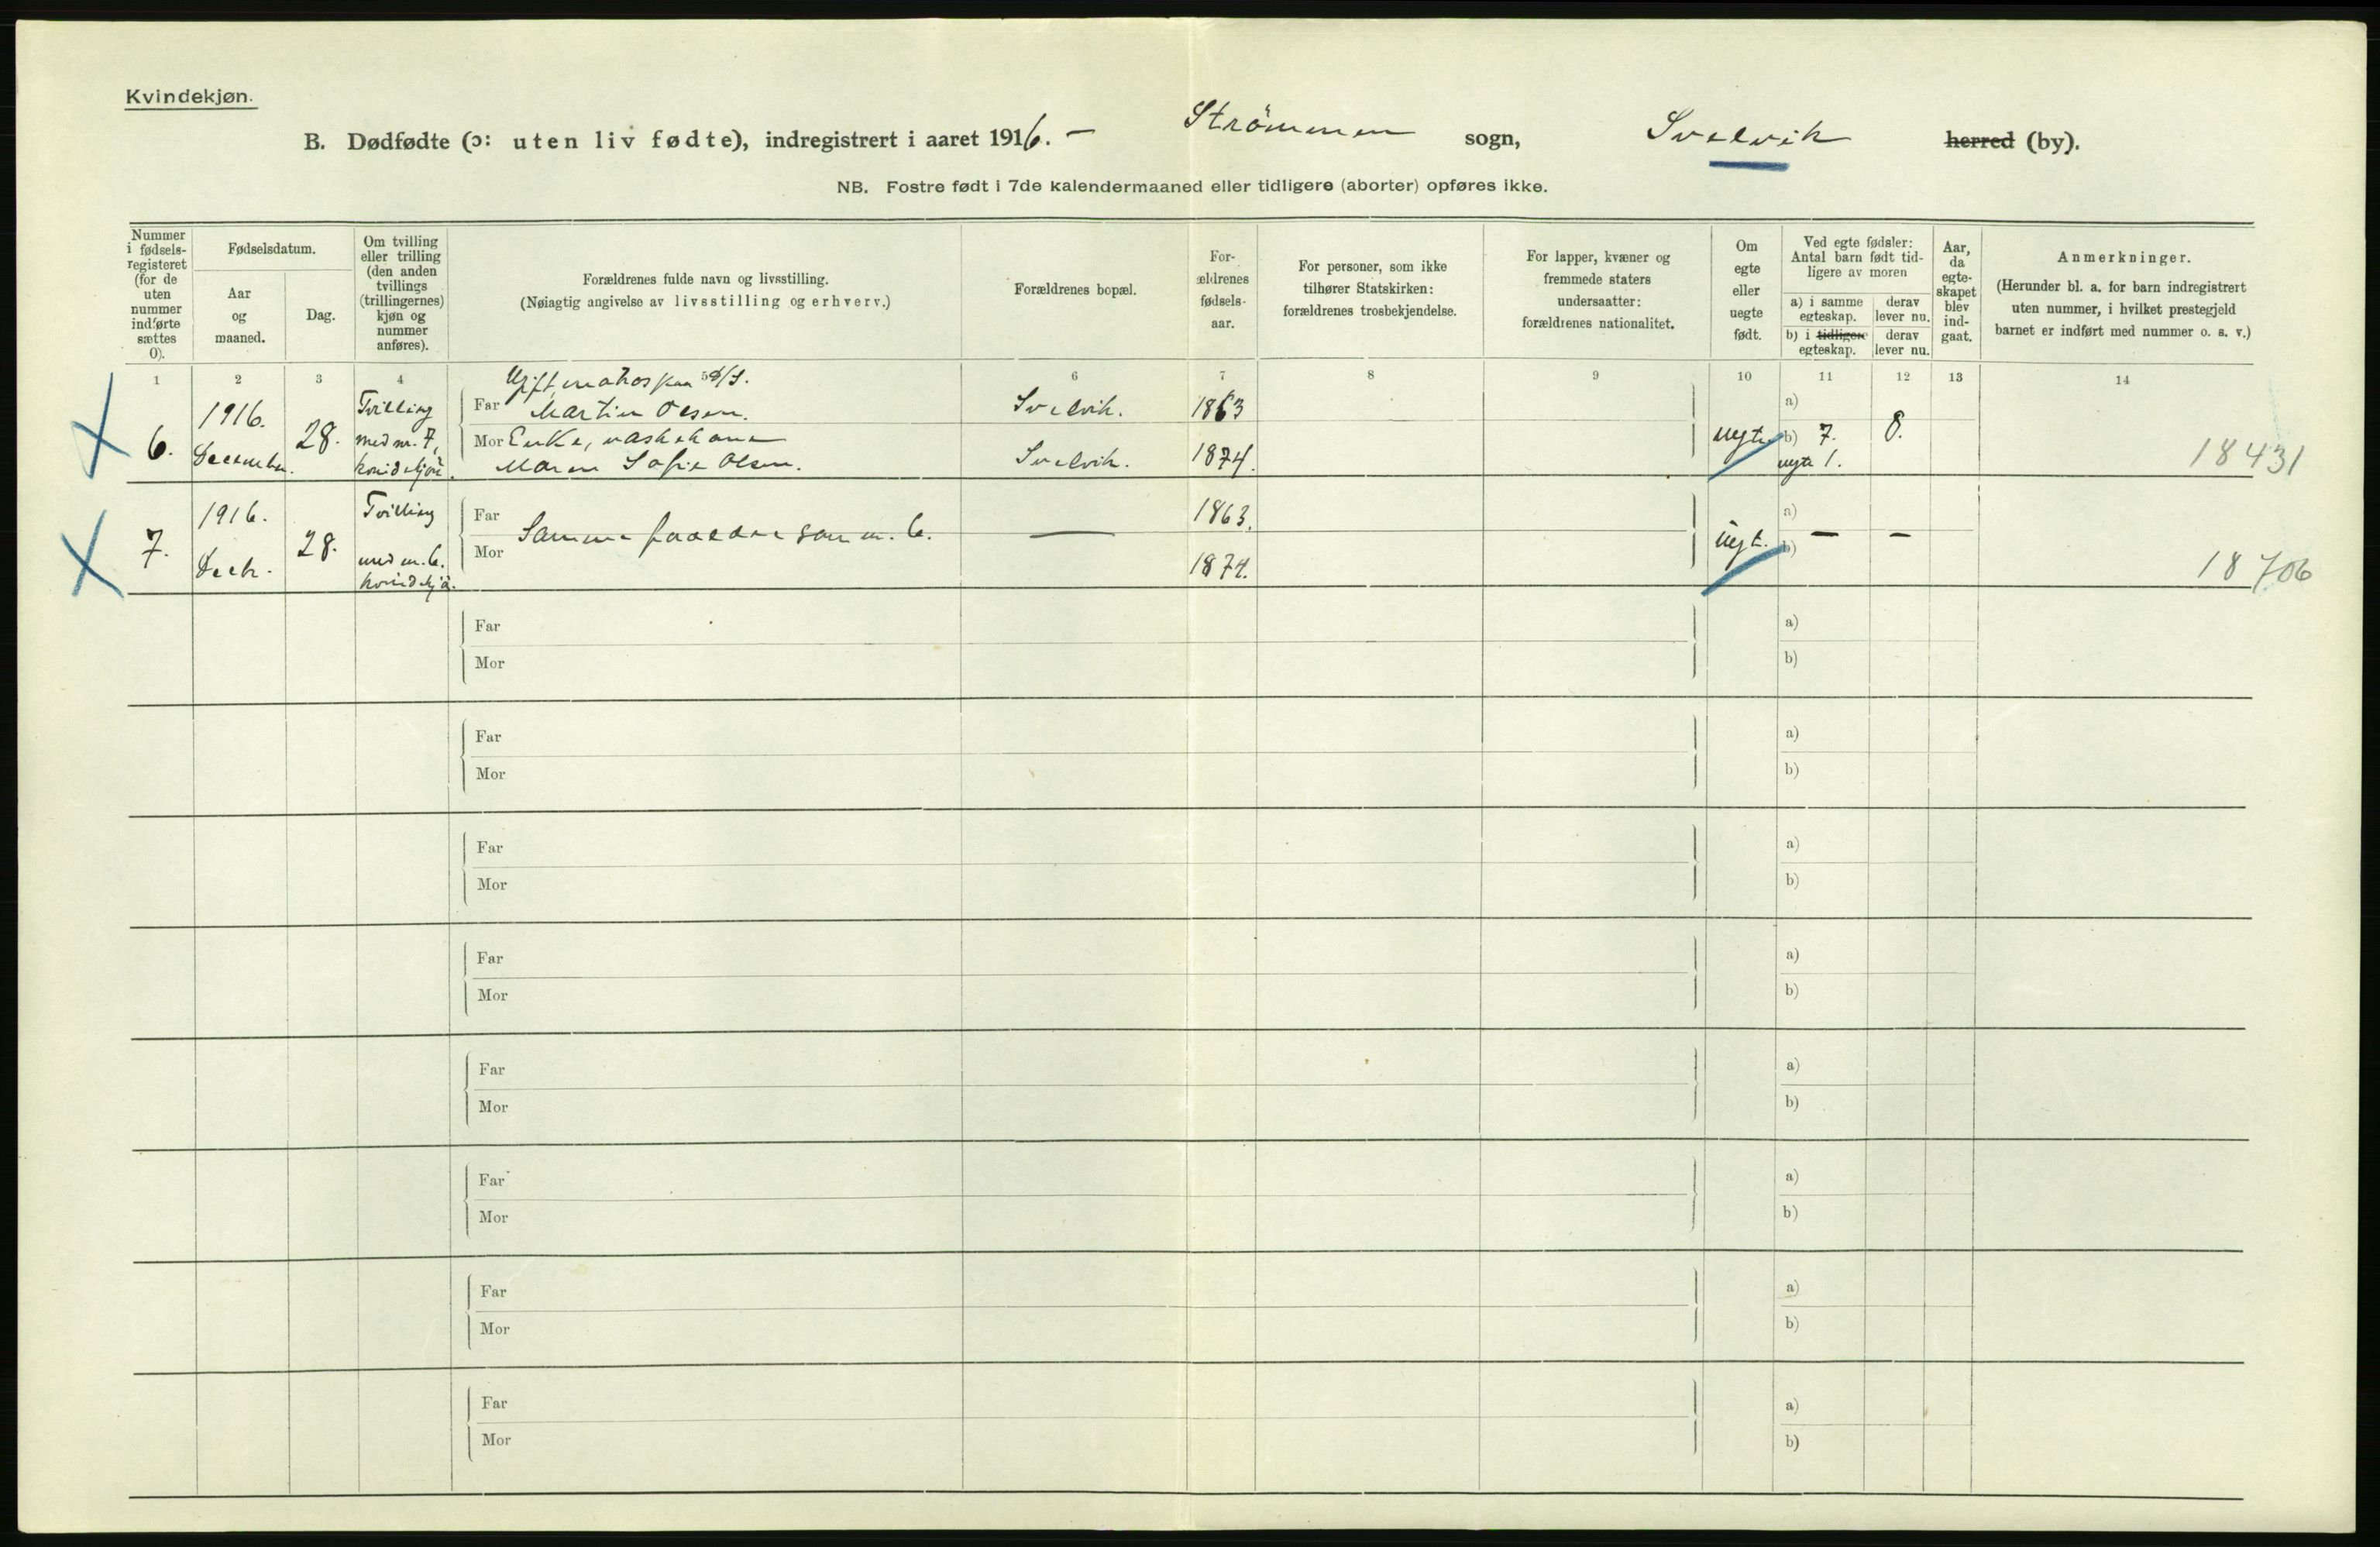 Kvindekjøn.
B. Dødfødte (ɔ: uten liv fødte), indregistrert i aaret 1916. – Strömmen sogn, Svelvik herred (by).
NB. Fostre født i 7de kalendermaaned eller tidligere (aborter) opføres ikke.
Nummer i fødsels-registeret (for de uten nummer indførte sættes 0).
Fødselsdatum.
Aar og maaned.
Dag.
Om tvilling eller trilling (den anden tvillings (trillingernes) kjøn og nummer anføres).
Forældrenes fulde navn og livsstilling.
(Nøiagtig angivelse av livsstilling og erhverv.)
Forældrenes bopæl.
For-ældrenes fødsels-aar.
For personer, som ikke tilhører Statskirken: forældrenes trosbekjendelse.
For lapper, kvæner og fremmede staters undersaatter: forældrenes nationalitet.
Om egte eller uegte født.
Ved egte fødsler: Antal barn født tid-ligere av moren
a) i samme egteskap.
derav lever nu.
b) i tidligere egteskap.
derav lever nu.
Aar, da egte-skapet blev ind-gaat.
Anmerkninger.
(Herunder bl. a. for barn indregistrert uten nummer, i hvilket prestegjeld barnet er indført med nummer o. s. v.)
1 2 3 4 5 6 7 8 9 10 11 12 13 14
6. 1916. December. 28. Tvilling med nr. 7, kvindekjön.
Far Martin Olsen. Svelvik. 1863
Mor Enke, vaskekone
Maren Sofie Olsen. Svelvik. 1874.
uegte a) b) 7. uegte 1. 8. 18431
7. 1916. Decbr. 28. Tvilling med nr. 6. kvindekjö.
Far Mor Samme forældre som nr. 6. — 1863. 1874.
uegt. a) b) — — 18706
Far a)
Mor b)
Far a)
Mor b)
Far a)
Mor b)
Far a)
Mor b)
Far a)
Mor b)
Far a)
Mor b)
Far a)
Mor b)
Far a)
Mor b)